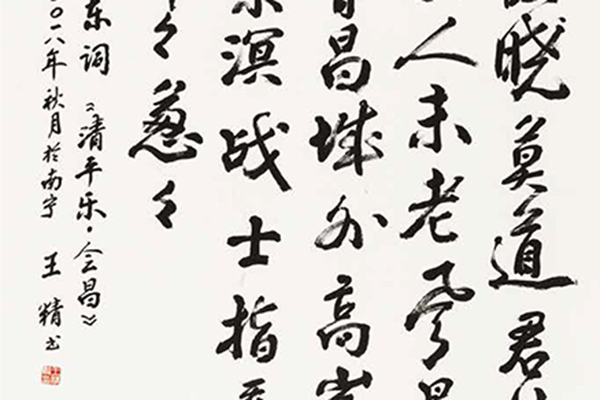 晓莫道君
人未老风景
昌城外高
溟战士指
々葱々
东词《清平乐·会昌》
〇一八年秋月於南宁 王精书